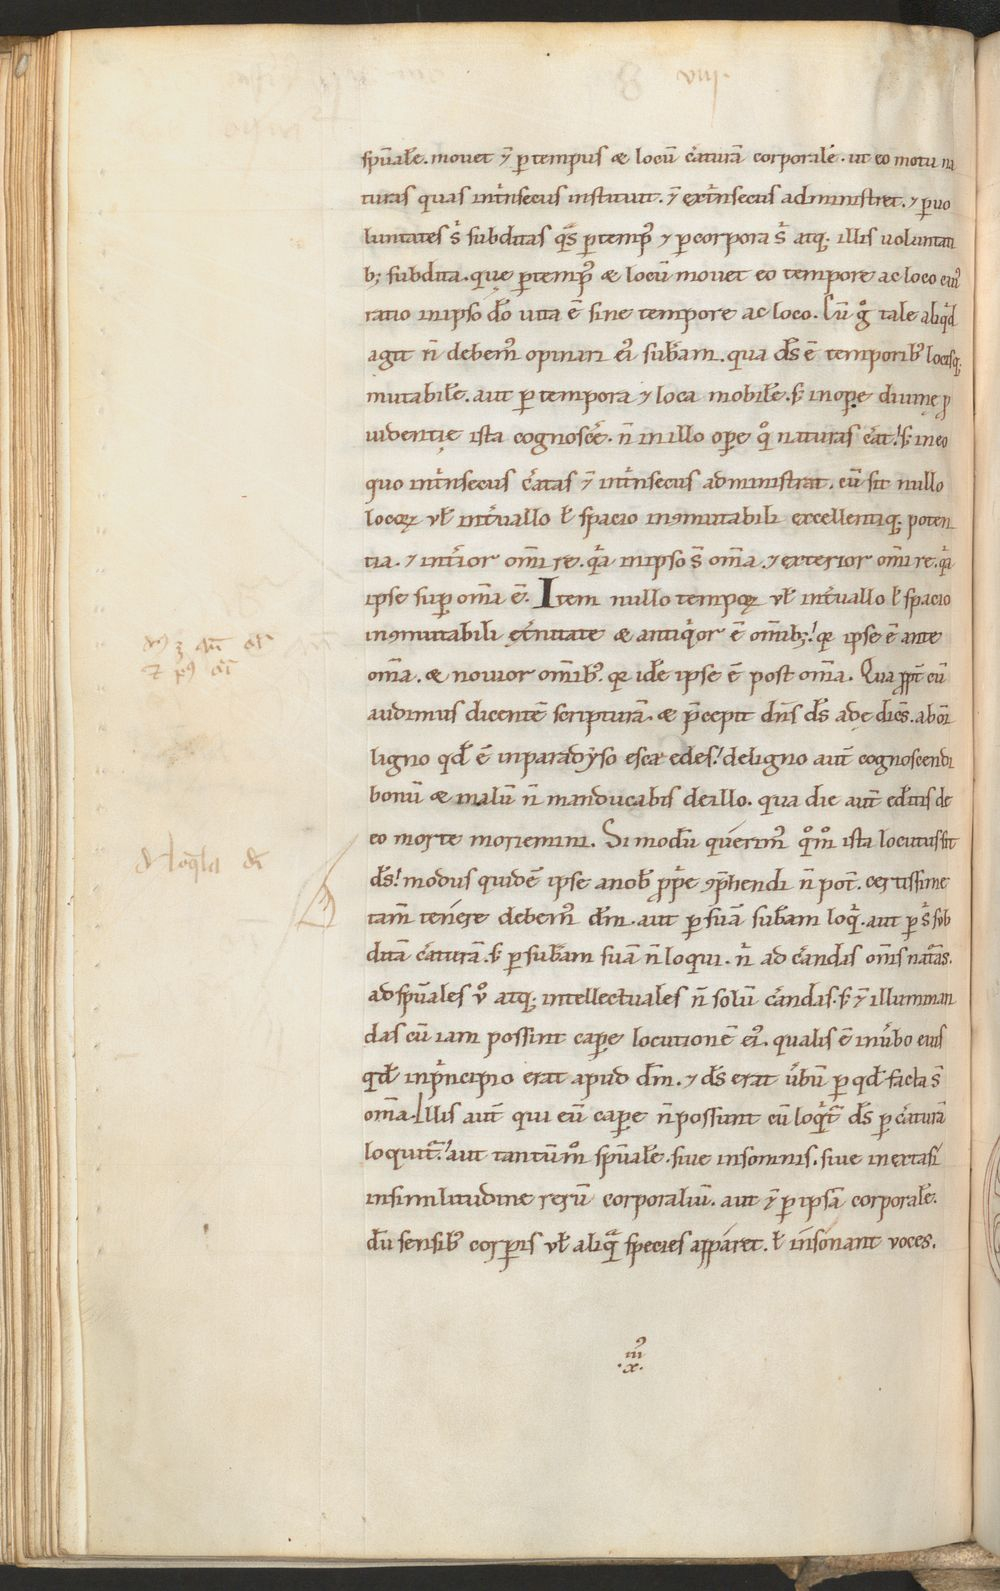 viij.
sp̄uałe. mouet ⁊̄ p tempus & locū c̄aturā corporałē. ut eo motu na
turas quas int̄nsecus instituit. ⁊̄ ext̄nsecus administret. ⁊ p uo
luntates s̄ subditas q̄s p temp᷒ ⁊ p corpora s̄ atq; illis uoluntati
b; subdita. quę p temp᷒ & locū mouet eo tempore ac loco cui᷒
ratio in ipso dō uita ē sine tempore ac loco. Cū g̊ tale aliq̄d
agit n̄ debem᷒ opinari ei᷒ sub̄am. qua d̄s ē temporib᷒ locisq;
mutabiłē. aut p tempora ⁊ loca mobiłē. s; in ope diuinę p
uidentię ista cognoscē. n̄ in illo ope q̊ naturas c̄at! s; in eo
quo int̄nsecus c̄atas ⁊̄ int̄nsecus administrat. cū sit nullo
locoꝝ uł int̄uallo ł spacio inꝯmutabili excellentiq; poten
tia. ⁊ int̄ior om̄i re. q̄a in ipso s̄ om̄a. ⁊ exterior om̄i re. q̄a
ipse sup om̄a ē. Item nullo tempoꝝ uł int̄uallo ł spacio
inꝯmutabili ęt̄nitate & antiq̄or ē om̄ib;! qr ipse ē ante
om̄a. & nouior om̄ib᷒. qr idē ipse ē post om̄a. Qua ꝓpt̄ cū
audimus dicentē scripturā. & p̄cepit dn̄s d̄s adę dicēs. ab om̄i
ligno qd̄ ē in paradyso esca edes! de ligno aut̄ cognoscendi
bonū & malū n̄ manducabis de illo. qua die aut̄ editis de
eo morte moriemini. Si modū querim᷒ q̊m̊ ista locutus sit
d̄s! modus quidē ipse a nob̄ ꝓp̄e ꝯp̄hendi n̄ pot̄. certissime
tam̄ tenere debem᷒ dm̄. aut p suā sub̄am loq̄. aut p s̄ sub
ditā c̄aturā. s; p sub̄am suā n̄ loqui. n̄ ad c̄andas om̄is nat̄as.
ad sp̄uales ů atq; intellectuales n̄ solū c̄andas. s; ⁊̄ illuminan
das cū iam possint cape locutionē ei᷒. qualis ē in ůbo eius
qd̄ in p̄ncipio erat apud dm̄. ⁊ d̄s erat ůbū p qd̄ facta s̄
om̄a. Illis aut̄ qui eū cape n̄ possunt cū loq̄t̄ d̄s p c̄aturā
loquit̄! aut tantūm̊ sp̄uałē. siue in somnis. siue in extasi
in similitudine rerū corporaliū. aut ⁊̄ p ipsā corporałē.
dū sensib᷒ corpis uł aliq̄ species apparet. ł insonant uoces.